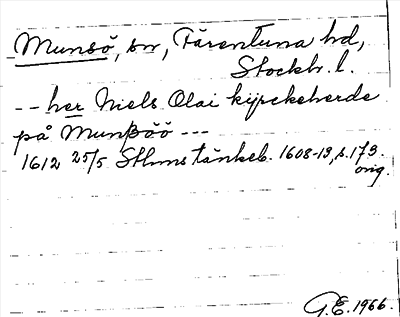 Munsö, sn, Färentuna hd,
Stockh. l.
-- her Niels Olai kyrckeherde
på Munßöö ---
1612 25/5 Sthms tänkeb. 1608-19, s. 173.
orig.
G.E. 1966.